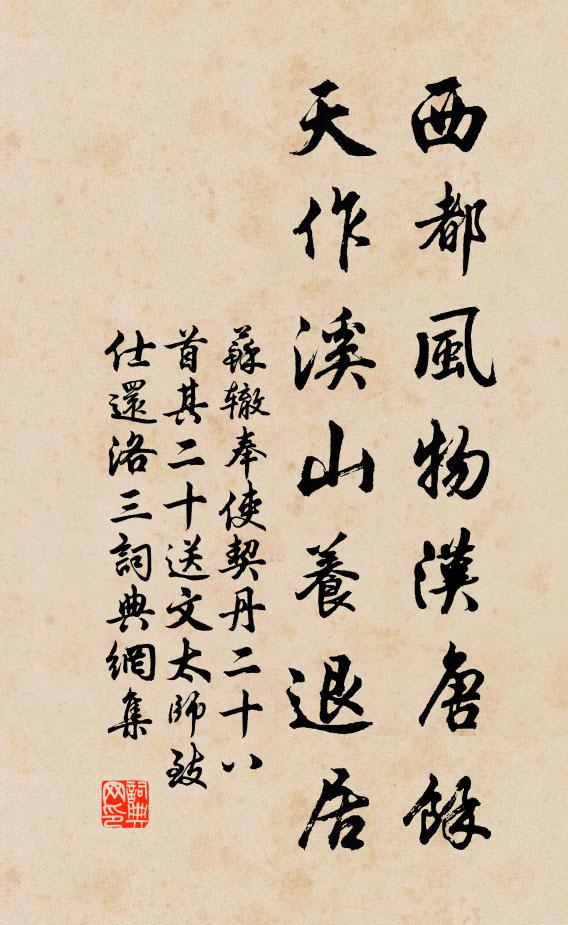 西都風物漢唐餘
天作溪山養退居
蘇轍奉使契丹二十八
首其二十送文太師致
仕還洛三詞典網集
詞典
网印